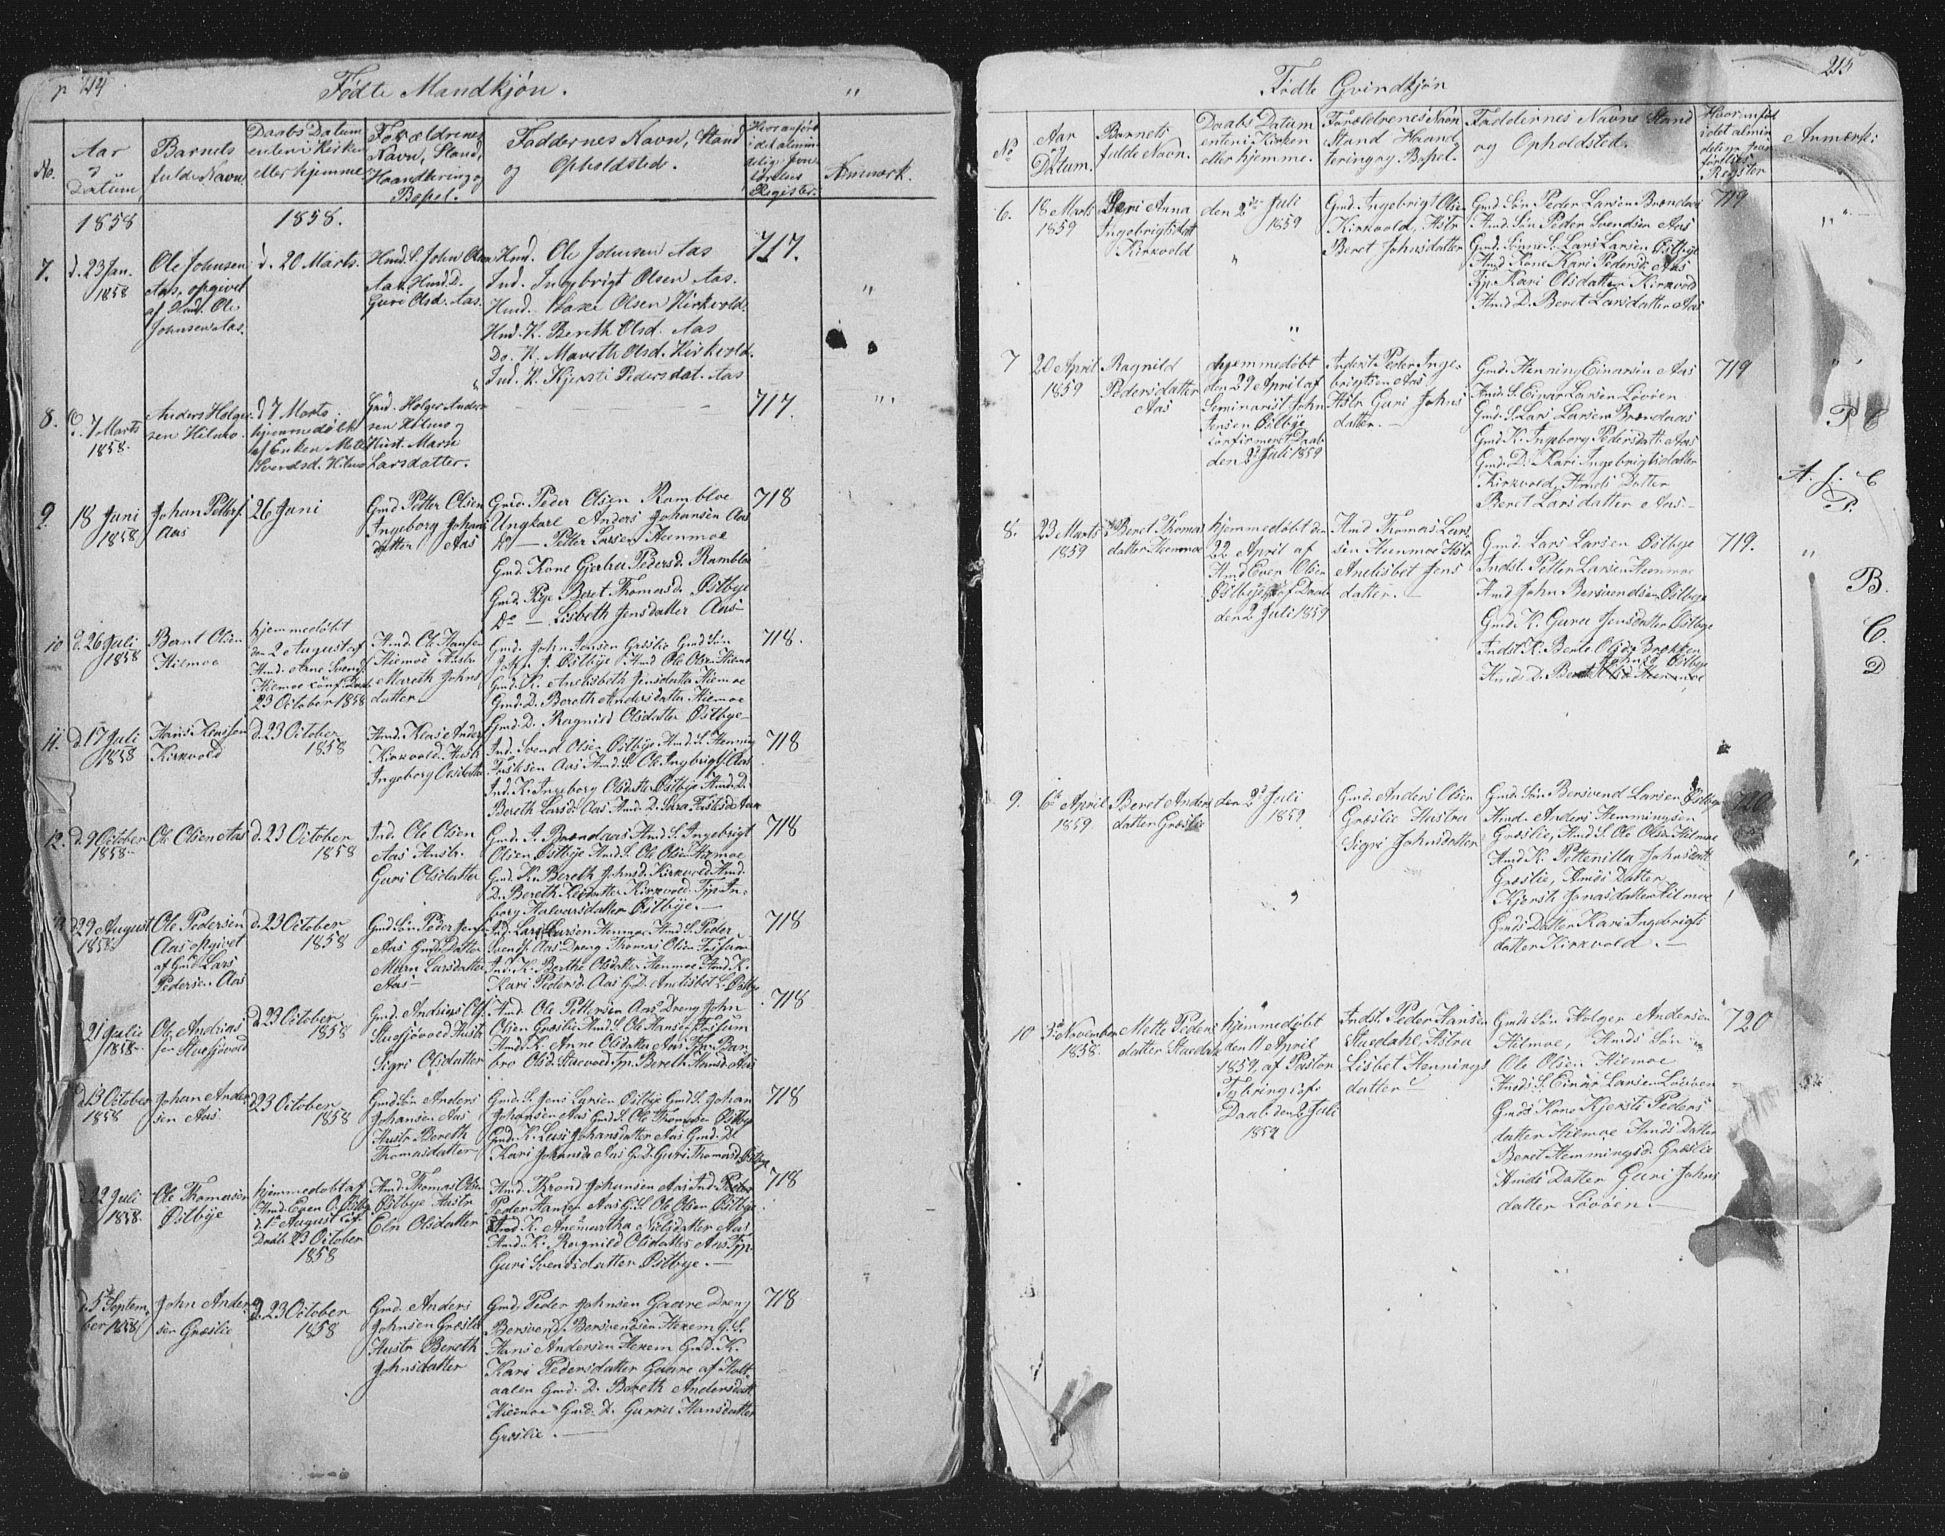 p 214
Fødte Mandkjøn.
"
No.
Aar
Datum
Barnets
fulde Navn
Daabs Datum
enten i Kirken
eller hjemme
Forældrenes
Navn, Stand,
Haandtering og
Bopel.
Faddernes Navn, Stand
og Opholdsted.
Anmærk.
1858
1858.
7.
d. 23 Jan.
1858
Ole Johnsen
Aas. opgivet
af Hmd. Ole
Johnsen Aas.
d. 20 Marts.
Hmd. S. John Olsen
Aas, Hmd. D.
Guri Olsd. Aas.
Hmd. Ole Johnsen Aas
Ind. Ingebrigt Olsen Aas.
Hmd. Olsen Kirkvold.
Hmd. K. Bereth Olsd. Aas
Do. K. Mareth Olsd. Kirkvold.
Ind. K. Kjersti Pedersdat. Aas
717.
"
8.
d. 7 Marts
1858.
Anders Holger
sen Hilmo.
d 7 Marts
hjemmedøbt
af Enken Mette
Svendsd. Hilmo
Gmd. Holger Ander
sen Hilmo og
Hust. Marit
Larsdatter.
717.
" "
9.
18 Juni
1858
Johan Petters.
Aas
26 Juni
Gmd Petter Olsen
Ingeborg Johans
datter Aas
Gmd. Peder Olsen Rambloe
Ungkarl Anders Johansen Aas
Do — Petter Larsen Heenmoe
Gmd. Kone Gjertru Pedersd. Ramblo
Gmd. Pige Beret Thomasd. Østbye
Do — Lisbeth Jensdatter Aas
718
10
d. 26 Juli
1858
Bernt Olsen
Hilmoe
hjemmedøbt
den 2 August af
Hmd. Arne Svends
Hilmoe Conf. Daab
23 October 1858
Hmd. Ole Hansen
Hilmoe Hustr.
Mareth Johns
datter
Gmd. John Jensen Græslie Gmd Søn
John J. Østbye Hmd Ole Olsen Hilmo
Gmd. K. Anelisbeth Jensdatter Hilmoe
Gmd. D. Bereth Andersdatter Hilmoe
Gmd. D. Ragnild Olsdatter Østbye
718.
11.
d. 17 Juli
1858
Hans Klasson
Kirkvold
d. 23 October
1858
Hmd. Klas Anders
Kirkvold. Hustr.
Ingeborg Olsdatter
Ind. Svend Olsen Østbye Hmd. S. Henning
Eselsen Aas Hmd. S. Ole Ingbrigts. Aas
Ind. K. Ingeborg Olsdatter Østbye Hmd. D.
Bereth Larsd. Aas Hmd. D.
718
12.
d. 9 October
1858
Ole Olsen Aas
d. 23 October
1858
Ind. Ole Olsen
Aas Hustr.
Guri Olsdatter
Gmd. A. Brændaas Hmd. S. Ingebrigt
Olsen Østbye Hmd. S. Ole Olsen Hilmoe
Gmd. K. Bereth Johnsd. Kirkvold. Hmd.
D. Bereth Klasdatter Kirkvold. Tjp. In-
borg Halvarsdatter Østbye. —
718
d 29 August
1858
Ole Pedersen
Aas opgivet
af Gmd Lars
Pedersen Aas
d. 23 October
1858
Gmd Søn Peder Jens
Aas Gmd. Datter
Maren Larsdatter
Aas
Ind. Lars Larsen Henmoe Hmd. S. Peder
Svends. Aas Dreng Thomas Olsen
Ind. K. Berthe Olsdatter Henmoe Hmd. K.
Kari Pedersd. Aas G. D. Anelisbet L. Østby
718
d 21 Julii
1858
Ole Andrias
sen Stuesjøvold
d. 23 October
1858
Gmd. Andrias Ols.
Stuesjøvold Hustr.
Sigri Olsdatter
Hmd. Ole Pettersen Aas Dreng John
Olsen Græslie Hmd. S. Ole Hansen
Hmd. K. Arne Olsdatter Aas Tjp. Bar
bro Olsd. Stuevold Tjp. Bereth Hansd. Aas
718
d. 13 October
1858
Johan Ander
sen Aas.
d 23 October
1858
Gmd Søn Anders
Johansen Aas
Hustr. Bereth
Thomasdatter
Gmd. S. Jens Larsen Østbye Gmd. S. Johan
Johansen Aas Gmd. S. Ole Thomasen Østbye
Gmd. K. Lusi Johansdatter Aas Gmd. D.
Kari Johnsd. Aas G. D. Guri Thomasd. Østbye
718
d 22 Juli
1858
Ole Thomasen
Østbye
hjemmedøbt af
Hmd. Even O. Østby
d. 1te August Conf
Daab. 23 October
1858
Hmd. Thomas Olsen
Østbye Hustr.
Eln Olsdatter
Hmd. Trond Johansen Aas Ind. Peder
Peder Hansen Aas G. S. Ole Olsen Østbye
Hmd. K. Anemartha Nielsdatter Aas
Hmd. K. Ragnild Olsdatter Aas Tjp.
Guri Svendsdatter Østbye. —
718
d. 5te Septem
ber 1858
John Ander
sen Græslie
d. 23 October
1858
Gmd. Anders
Johnsen Græslie
Hustr Bereth
Johnsdatter
Gmd. Peder Johnsen Gaare Dreng
Bersvend Bersvendsen Hexem G. S.
Hans Andersen Hexem Gmd. K.
Kari Pedersdatter Gaare af Holt-
aalen Gmd. D. Bereth Andersdatt
Hilmoe Gmd. D. Gurru Hansdatter
Græslie. —
718
215
Fødte Qvindkjøn
No
Aar
og
Datum.
Barnets
fulde Navn.
Daabs Datum
enten i Kirken
eller hjemme.
Forældrenes Navn
Stand Haand
tering og Bopel.
Faddernes Navne Stand
og Opholdsted.
Anmærk:
6.
18 Marts
1859
Seri Anna
Ingebrigtsdatt
Kirkvold
den 2den Juli
1859
Gmd. Ingebrigt Olsen
Kirkvold, Hstr
Beret Johnsdatter
Gmd. Søn Peder Larsen Brændaas
Hmd. Søn Peder Svendsen Aas
Gmd. Sønne S. Lars Larsen Østbye
Hmd Kone Kari Pedersd. Aas
Tjp. Kari Olsdatter Kirkvold
Hmd D. Beret Larsdatter Aas
719
" "
7
20 April
1859
Ragnild
Pedersdatter
Aas
hjemmedøbt
den 29 April af
Seminarist John
Jensen Østbye
confirmeret Daab
den 2 Juli 1859
Inderst Peder Inge-
brigtsen Aas
Hstr. Guri Johns
datter. —
Gmd. Henning Einarsen Aas
Hmd. S. Einar Larsen Løvøen
Gmd. S. Lars Larsen Brændaas
Gmd K. Ingeborg Pedersdatt. Aas
Gmd. D. Kari Ingebrigtsdatter
Kirkvold, Hmds Datter
Beret Larsdatter Aas. —
719
P. C
A. J. C
P.
8.
23 Marts
1859
Beret Thomas
datter Henmoe
hjemmedøbt den
22 April af
Hmd Even Olsen
Østbye Daab
den 2 Juli 1859
Hmd Thomas Lars
sen Heenmoe Hst.
Anelisbet Jens
datter. —
Gmd. Lars Larsen Østbye
Indst. Petter Larsen Heenmoe
Hmd John Bersvendsen Østbye
Gmd. K. Guru Jensdatter Østbye
Indst. K. Berte Olsds Brækken
Hmds D. Beret
719.
"
B.
C.
D
9.
6te April
1859
Beret Anders
datter Græslie
den 2d Juli
1859
Gmd. Anders Olsen
Græslie Hustru
Sigri Johnsdatter
Gmd. Søn Bersvend Larsen Østbye
Hmd. Anders Hemmingsen
Græslie, Hmd S. Ole Olsen Hilmoe
Hmd K. Pettenilla Johnsdatt
Græslie, Hmds Datter
Kjersti Jonasdatter Hilmoe
Gmds Datter Kari Ingebrigts
datter Kirkvold. —
720
"
10
3de November
1858.
Mette Peders
datter Stuedale
hjemmedøbt
den 11 April
1859, af Pastor
Tybring
Daab. den 2 Juli
1859
Indst. Peder Hansen
Stuedahl, Hstru
Lisbet Hennings
datter
Gmds Søn Holger Andersen
Hilmoe, Hmds Søn
Ole Olsen Hilmoe
Hmds S. Einar Larsen Løvøen
Gmds Kone Kjersti Peders
datter Hilmoe Hmds Datter
Beret Hemmingsd. Græslie
Hmds Datter Guri Johns
datter Løvøen. —
720